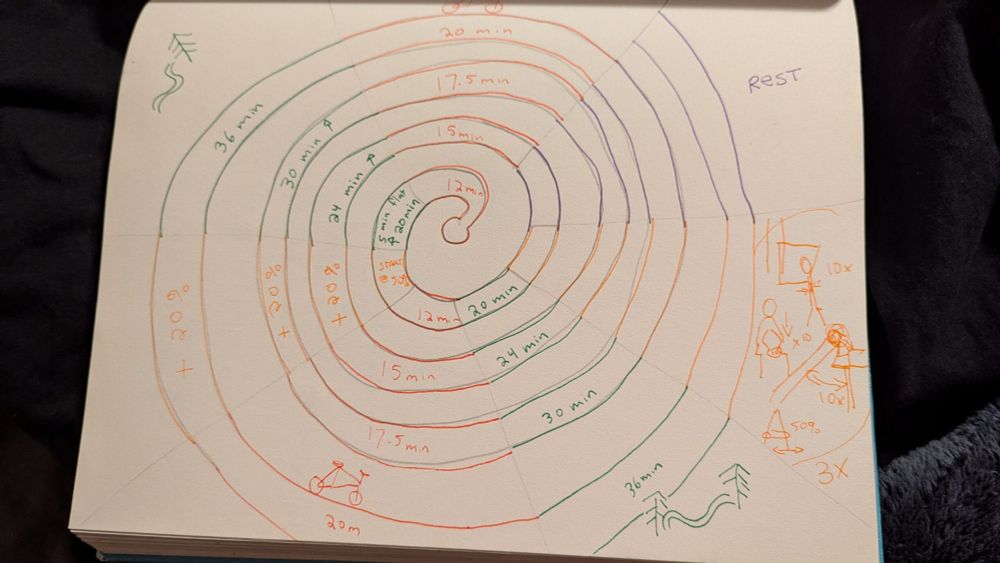 20 min
17.5 min
15 min
12 min
REST
36 min
30 min
24 min
5 min flat
20 min
START
@ 50%
+ 20%
+ 20%
+ 20%
12 min
20 min
15 min
24 min
17.5 min
30 min
20m
36 min
10x
x10
10x
50%
3x